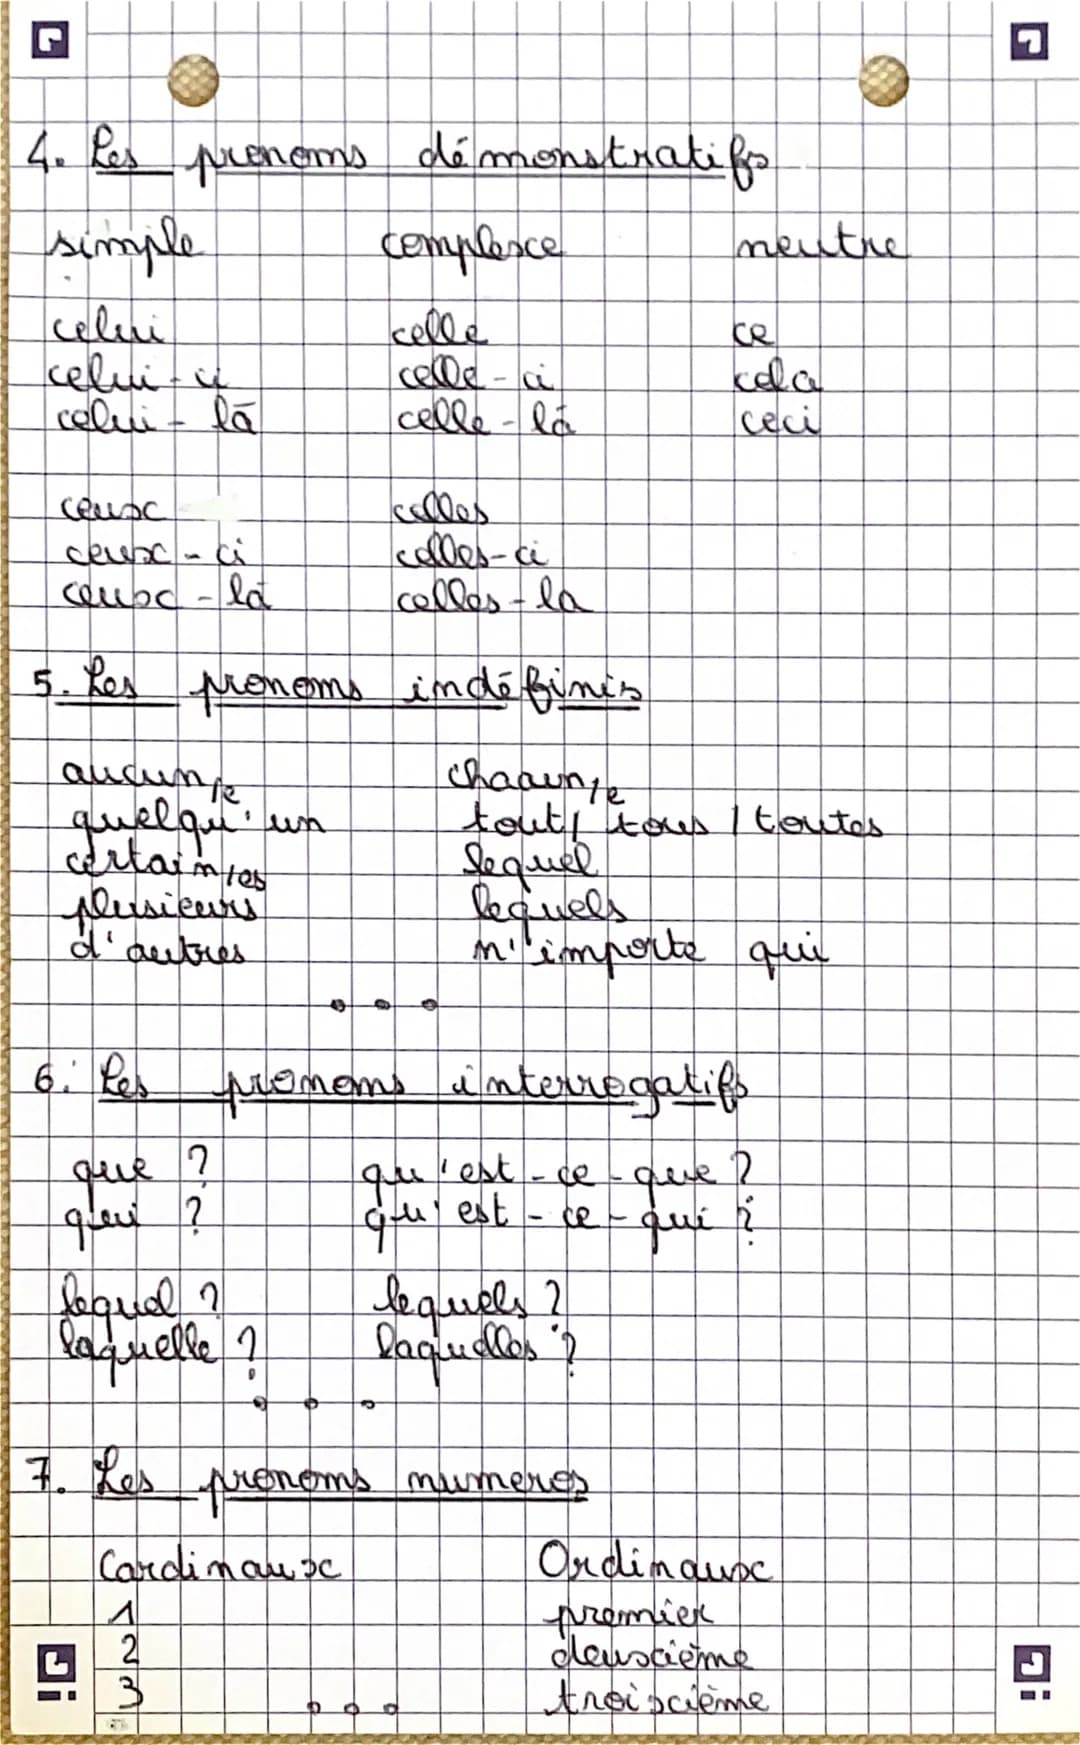 4. Les pronoms démonstratifs
simple complexe neutre
celui celle ce
celui-ci celle-ci cela
celui-là celle-là ceci
ceux celles
ceux-ci celles-ci
ceux-là celles-la
5. Les pronoms indéfinis
aucun/e chacun/e
quelqu'un tout/ tous / toutes
certain/es lequel
plusieurs lequels
d'autres n'importe qui
...
6. Les pronoms interrogatifs
que ? qu'est-ce-que ?
qui ? qu'est-ce-qui ?
lequel ? lequels ?
laquelle ? laquelles ?
...
7. Les pronoms numeros
Cardinaux Ordinaux
1 premier
2 deuxième
3 ... troisxième